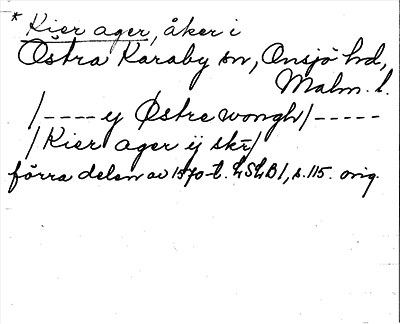 * Kier ager, åker i
Östra Karaby sn, Onsjö hd,
Malm. l.
/---- ij Østre wongh/-----
/Kier ager ij skr/
förra delen av 1570-t. LSLB1, s. 115. orig.